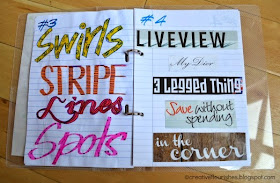 #3
Swirls
STRIPE
Lines
Spots
#4
LIVEVIEW
My Dior
3 Legged Thing
Save without
spending
in the
corner
©creativeflourishes.blogspot.com